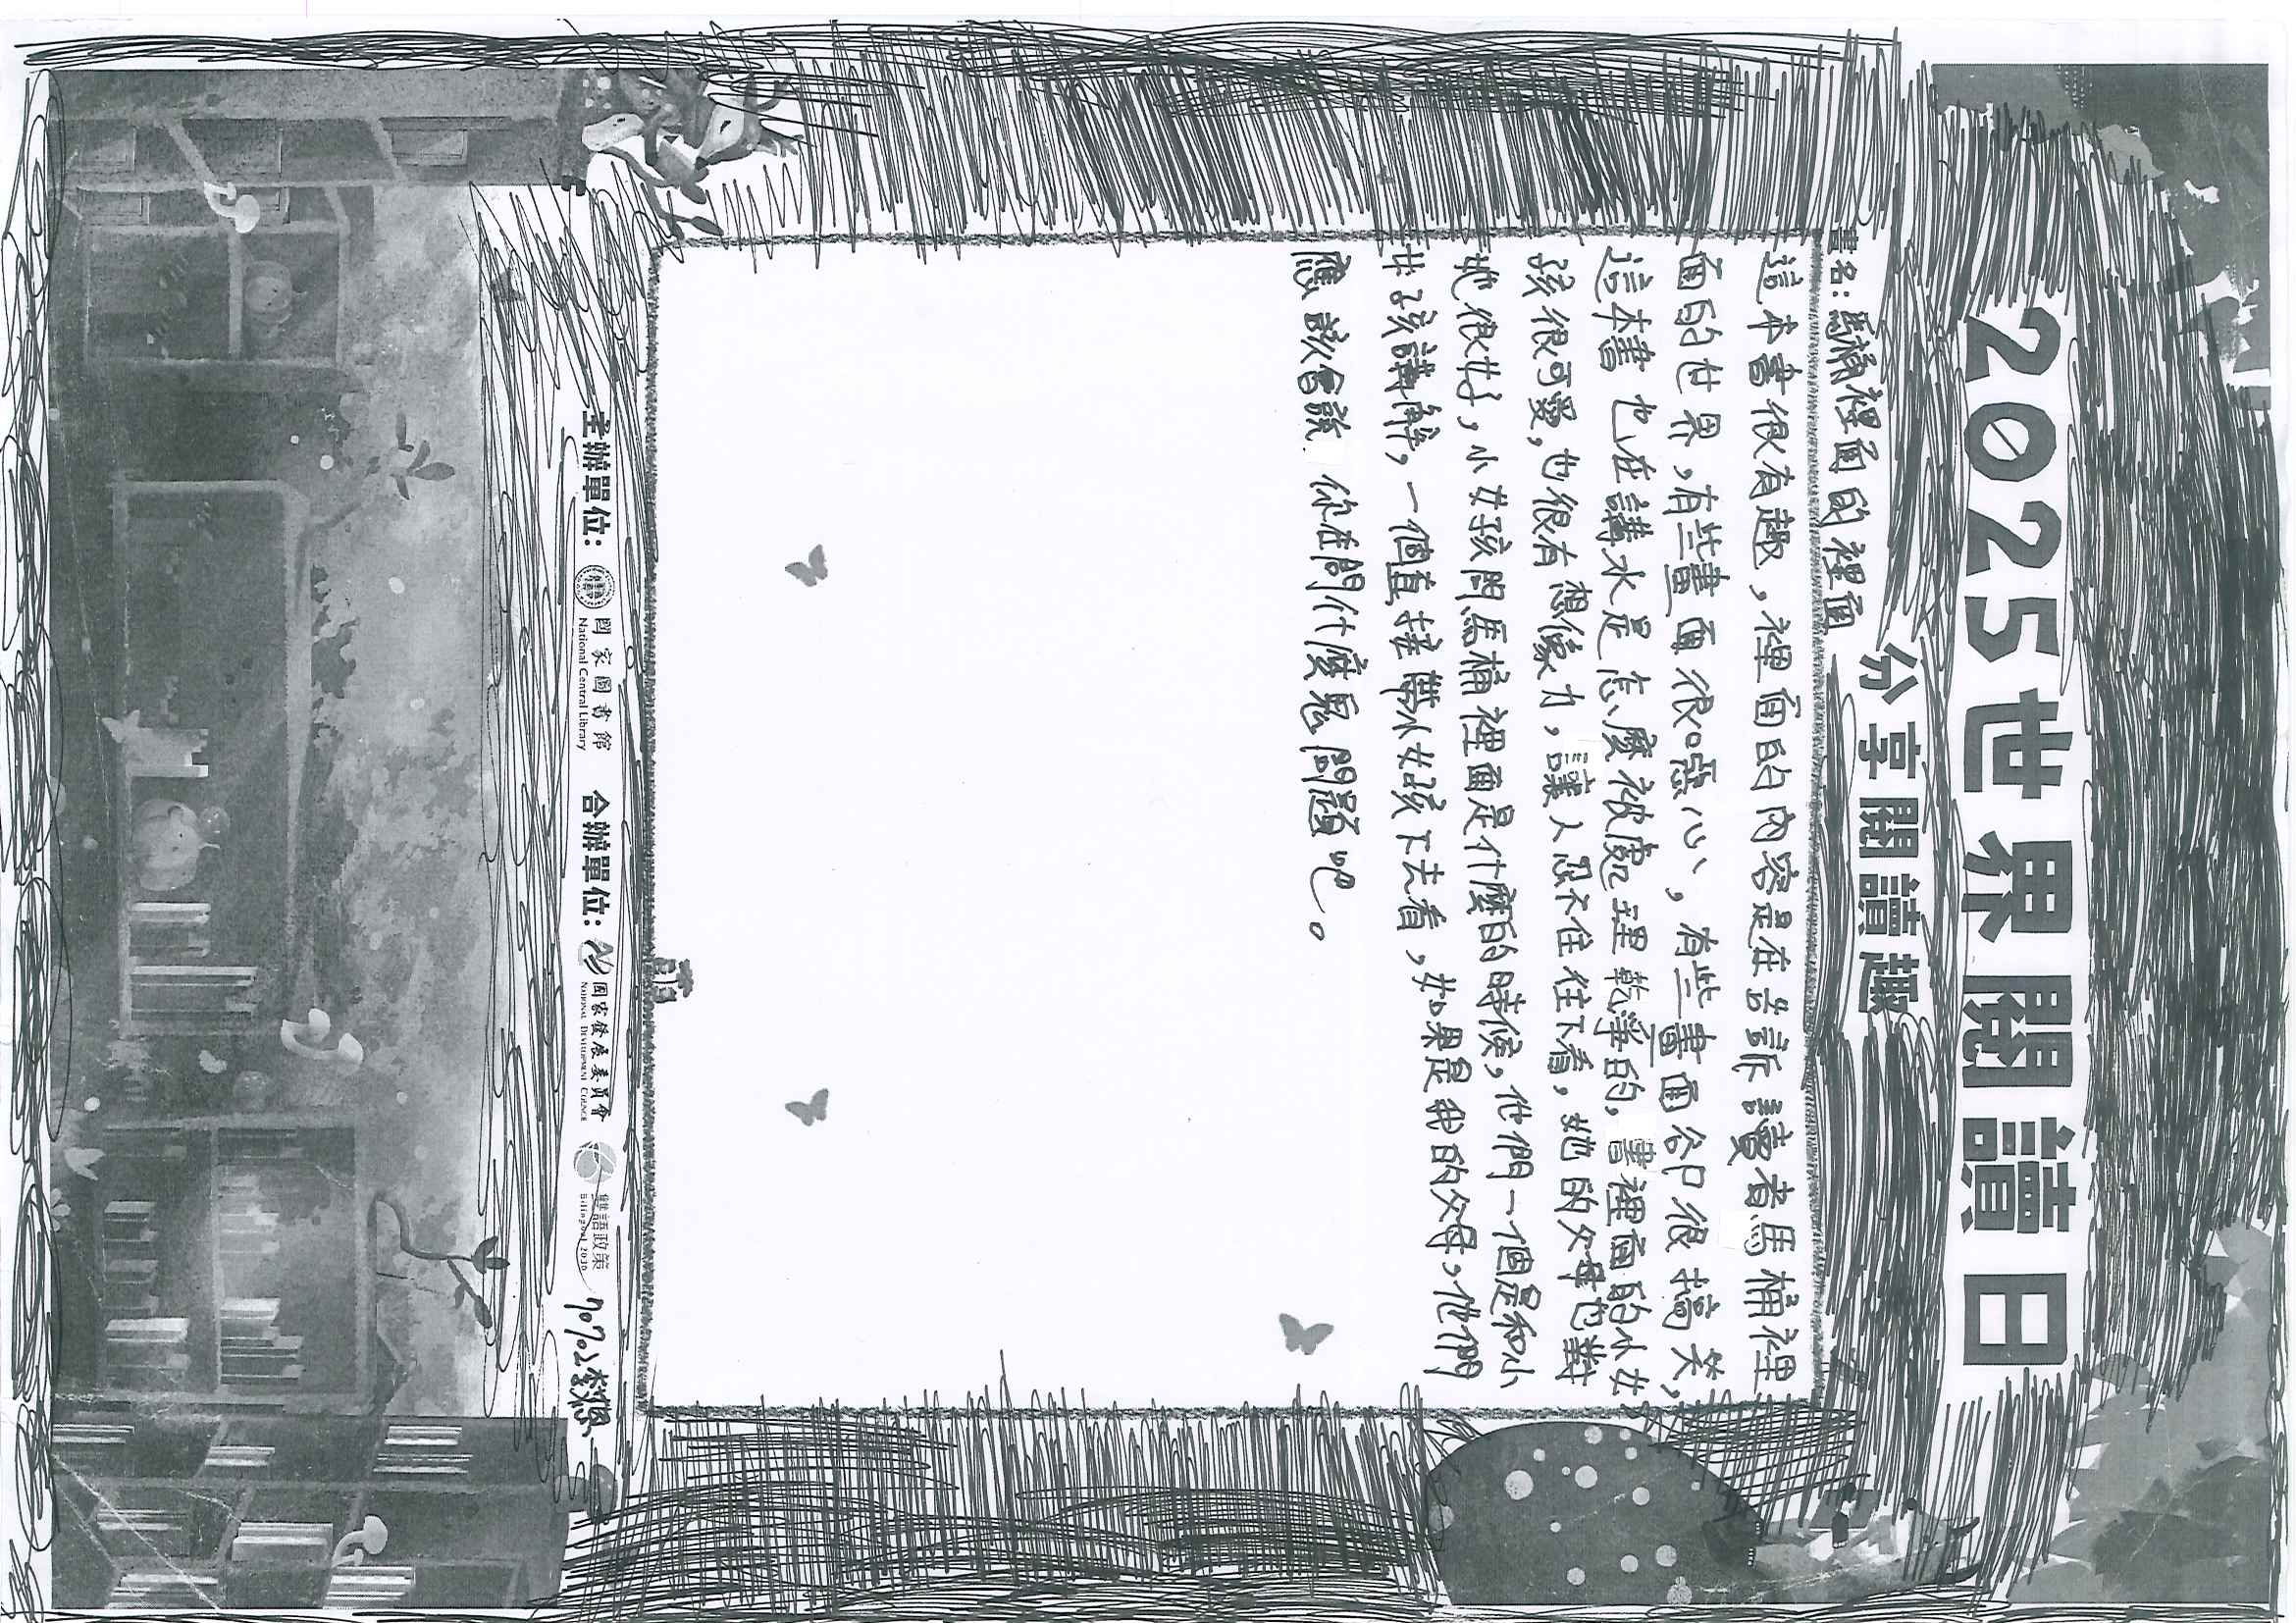 2025世界閱讀日
分享閱讀趣
書名:馬桶裡面的裡面
這本書很有趣,裡面的內容是在告訴讀者馬桶裡
面的世界,有些畫面很噁心,有些畫面卻很搞笑,
這本書也在講水是怎麼被處理乾淨的,書裡面的小女
孩很可愛,也很有想像力,讓人忍不住往下看,她的父母也對
她很好,小女孩問馬桶裡面是什麼的時候,他們一個是和小
女孩講解,一個直接帶小女孩下去看,如果是我的父母,他們
應該會說 你在問什麼鬼問題吧。
主辦單位:
國家圖書館
National Central Library
合辦單位:
國家發展委員會
National Development Council
雙語政策
Bilingual 2030